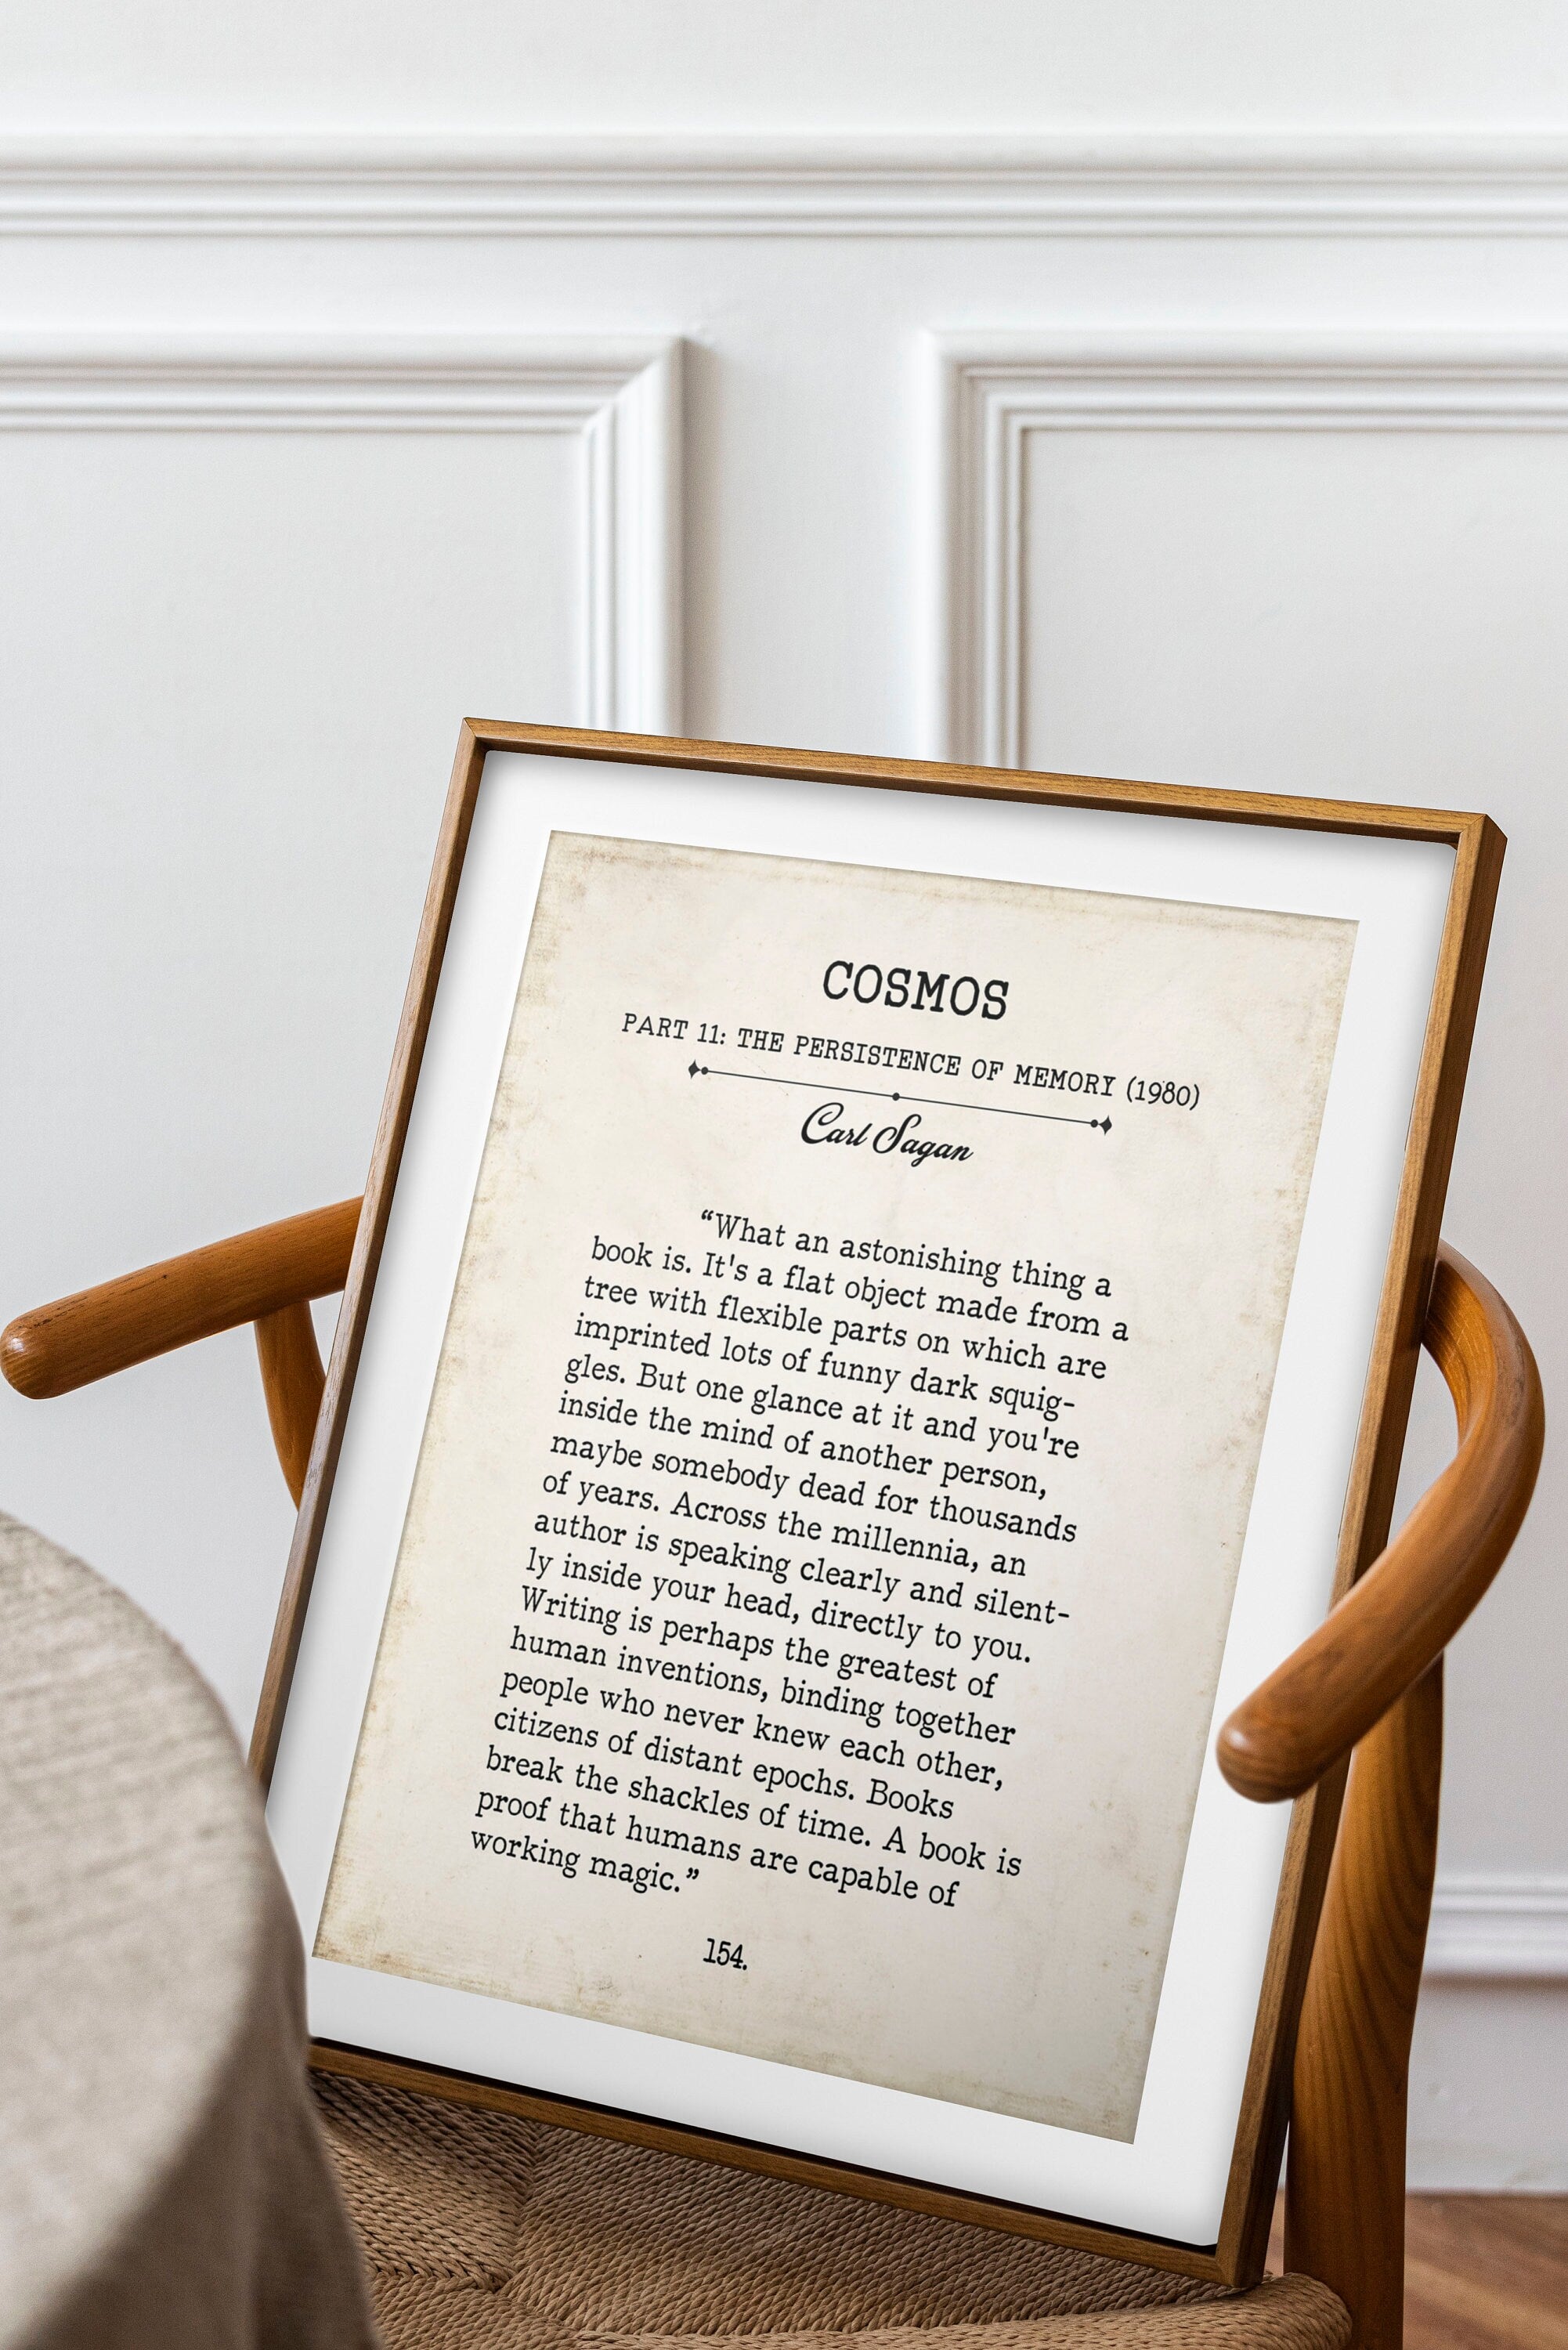 COSMOS
PART 11: THE PERSISTENCE OF MEMORY (1980)
Carl Sagan
“What an astonishing thing a
book is. It's a flat object made from a
tree with flexible parts on which are
imprinted lots of funny dark squig-
gles. But one glance at it and you're
inside the mind of another person,
maybe somebody dead for thousands
of years. Across the millennia, an
author is speaking clearly and silent-
ly inside your head, directly to you.
Writing is perhaps the greatest of
human inventions, binding together
people who never knew each other,
citizens of distant epochs. Books
break the shackles of time. A book is
proof that humans are capable of
working magic.”
154.